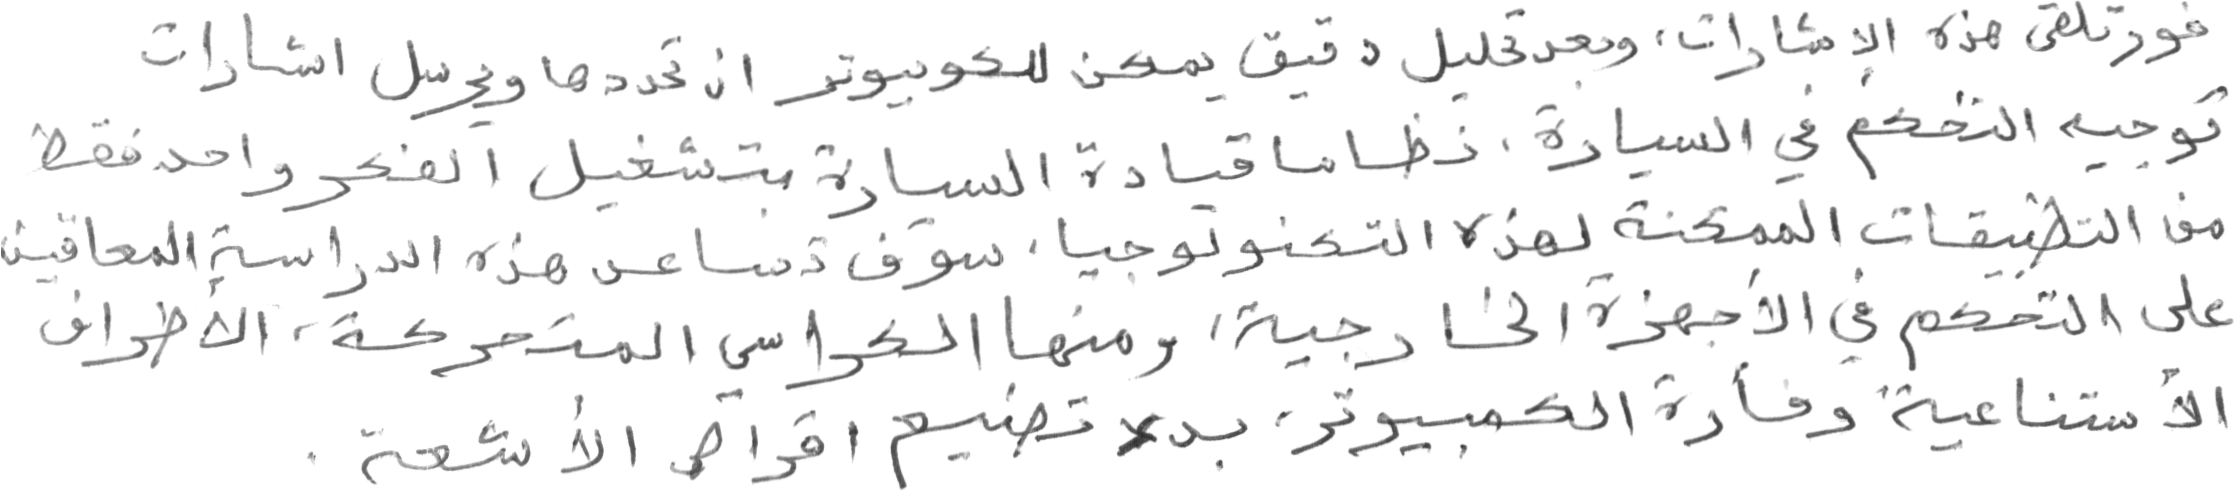 فور تلقى هذه الاشارات، وبعد تحليل دقيق يمكن للكوبيوتر ان تحددها ويرسل اشارات
توجيه التحكم في السيارة، نظاما قيادة السيارة بتشغيل الفكر واحد فقط
من التطبيقات الممكنة لهذه التكنولوجيا، سوف تساعد هذه الدراسة المعاقين
على التحكم في الأجهزة الخارجية، ومنها الكراسي المتحركة، الأطراف
الأستناعية وفأرة الكمبيوتر، بدء تصنيع اقراص الأشعة.